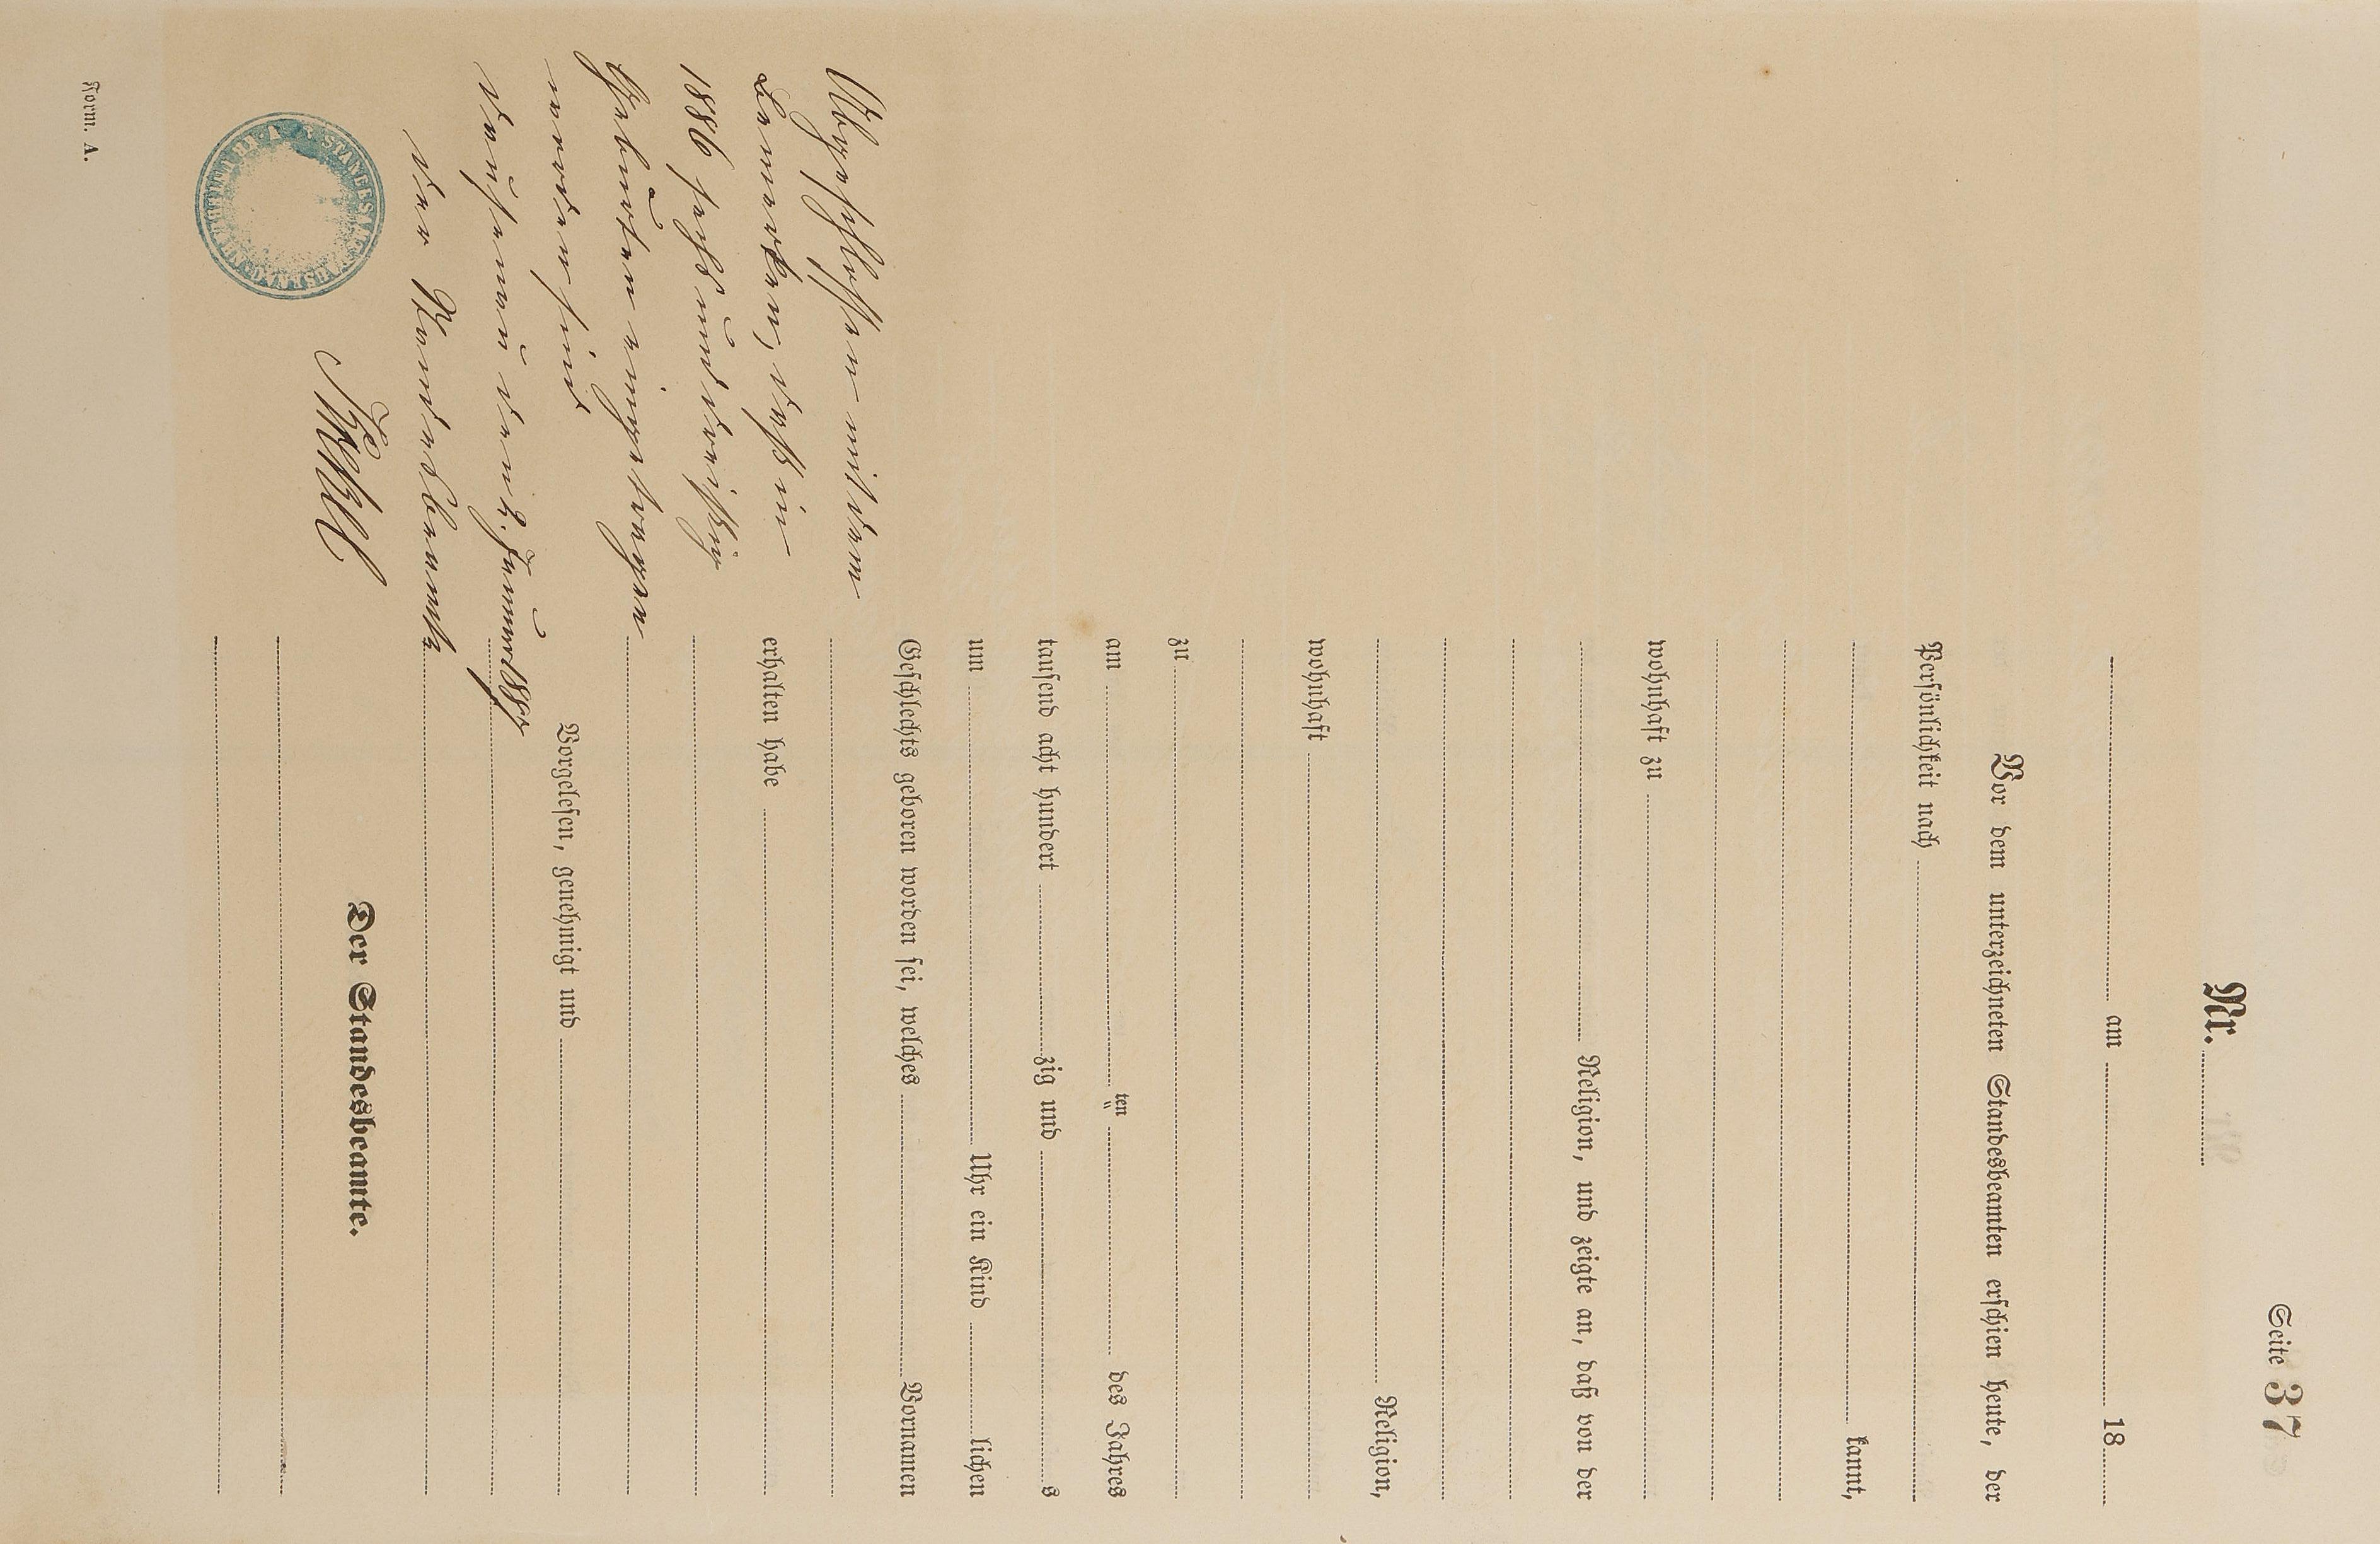 Seite 37
Nr.
am 18
Vor dem unterzeichneten Standesbeamten erschien heute, der
Persönlichkeit nach
kannt,
wohnhaft zu
Religion, und zeigte an, daß von der
Religion,
wohnhaft
zu
am ten des Jahres
tausend acht hundert zig und s
um Uhr ein Kind lichen
Geschlechts geboren worden sei, welches Vornamen
erhalten habe
Vorgelesen, genehmigt und
Der Standesbeamte.
Abgeschlossen mit dem
Bemerken, daß in
1886 sechs und dreißig
Geburten eingetragen
worden sind
Dausenau den 2. Januar 1887
der Standesbeamte
STANDESAMT DAUSENAU
Form. A.